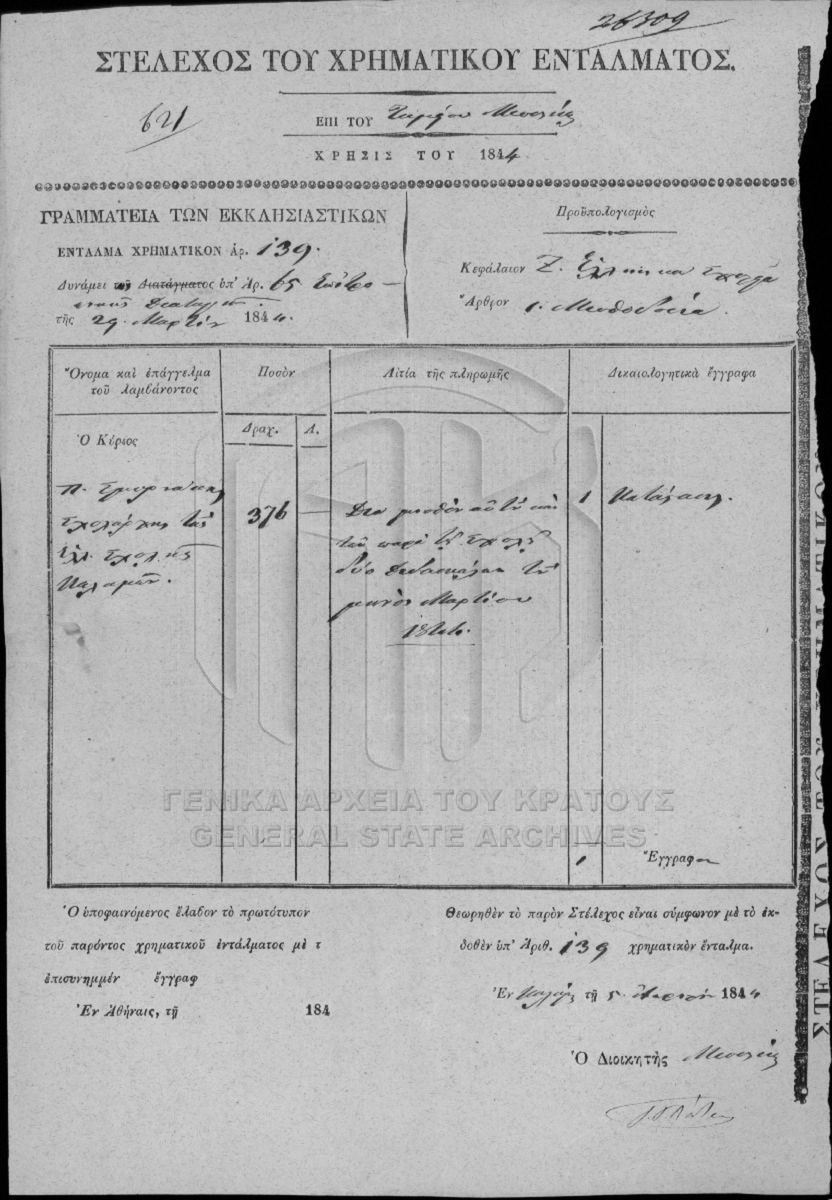 26309
ΣΤΕΛΕΧΟΣ ΤΟΥ ΧΡΗΜΑΤΙΚΟΥ ΕΝΤΑΛΜΑΤΟΣ.
621
ΕΠΙ ΤΟΥ Ταμείου
ΧΡΗΣΙΣ ΤΟΥ 1844
ΓΡΑΜΜΑΤΕΙΑ ΤΩΝ ΕΚΚΛΗΣΙΑΣΤΙΚΩΝ
ΕΝΤΑΛΜΑ ΧΡΗΜΑΤΙΚΟΝ ἀρ. 139.
Δυνάμει τοῦ Διατάγματος ὑπ' Ἀρ. 65
τῆς 29 Μαρτίου 1844.
Προϋπολογισμὸς
Κεφάλαιον Ζ. Ἑλληνικὰ σχολεῖα
Ἄρθρον 1. Μισθοδοσία.
Ὄνομα καὶ ἐπάγγελμα
τοῦ λαμβάνοντος
Ποσὸν
Αἰτία τῆς πληρωμῆς
Δικαιολογητικὰ ἔγγραφα
Δραχ.
Λ.
Ὁ Κύριος
Σχολάρχης τῆς
ἑλ. Σχολῆς
Καλαμῶν.
376 —
Διὰ μισθὸν αὐτοῦ καὶ
τῶν παρὰ τῇ Σχολῇ
δύο Διδασκάλων τοῦ
μηνὸς Μαρτίου
1844.
1 Κατάστασις.
1 Ἔγγραφον
ΓΕΝΙΚΑ ΑΡΧΕΙΑ ΤΟΥ ΚΡΑΤΟΥΣ
GENERAL STATE ARCHIVES
Ὁ ὑποφαινόμενος ἔλαβον τὸ πρωτότυπον
τοῦ παρόντος χρηματικοῦ ἐντάλματος μὲ τ
ἐπισυνημμέν ἔγγραφ
Ἐν Ἀθήναις, τῇ 184
Θεωρηθὲν τὸ παρὸν Στέλεχος εἶναι σύμφωνον μὲ τὸ ἐκ-
δοθὲν ὑπ' Ἀριθ. 139 χρηματικὸν ἔνταλμα.
Ἐν τῇ 5 Ἀπριλίου 1844
Ὁ Διοικητὴς
ΣΤΕΛΕΧΟΣ ΤΟΥ ΧΡΗΜΑΤΙΚΟΥ